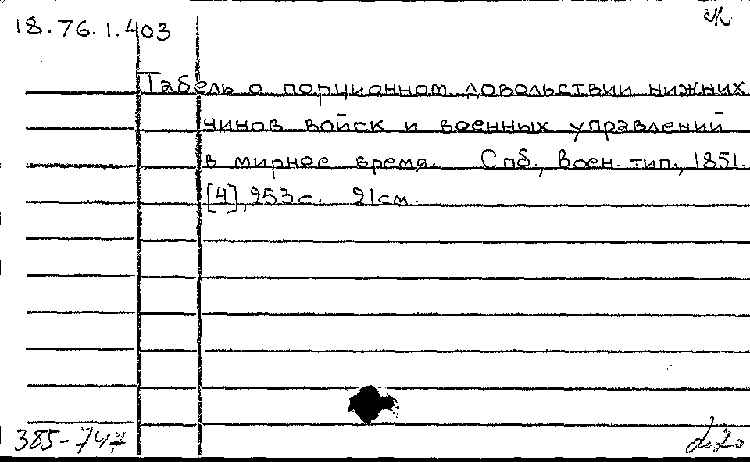 18.76.1.403
Табель о порционном довольствии нижних
чинов войск и военных управлений
в мирное время. Спб., Воен. тип., 1851.
[4], 253 с. 21 см.
385-747